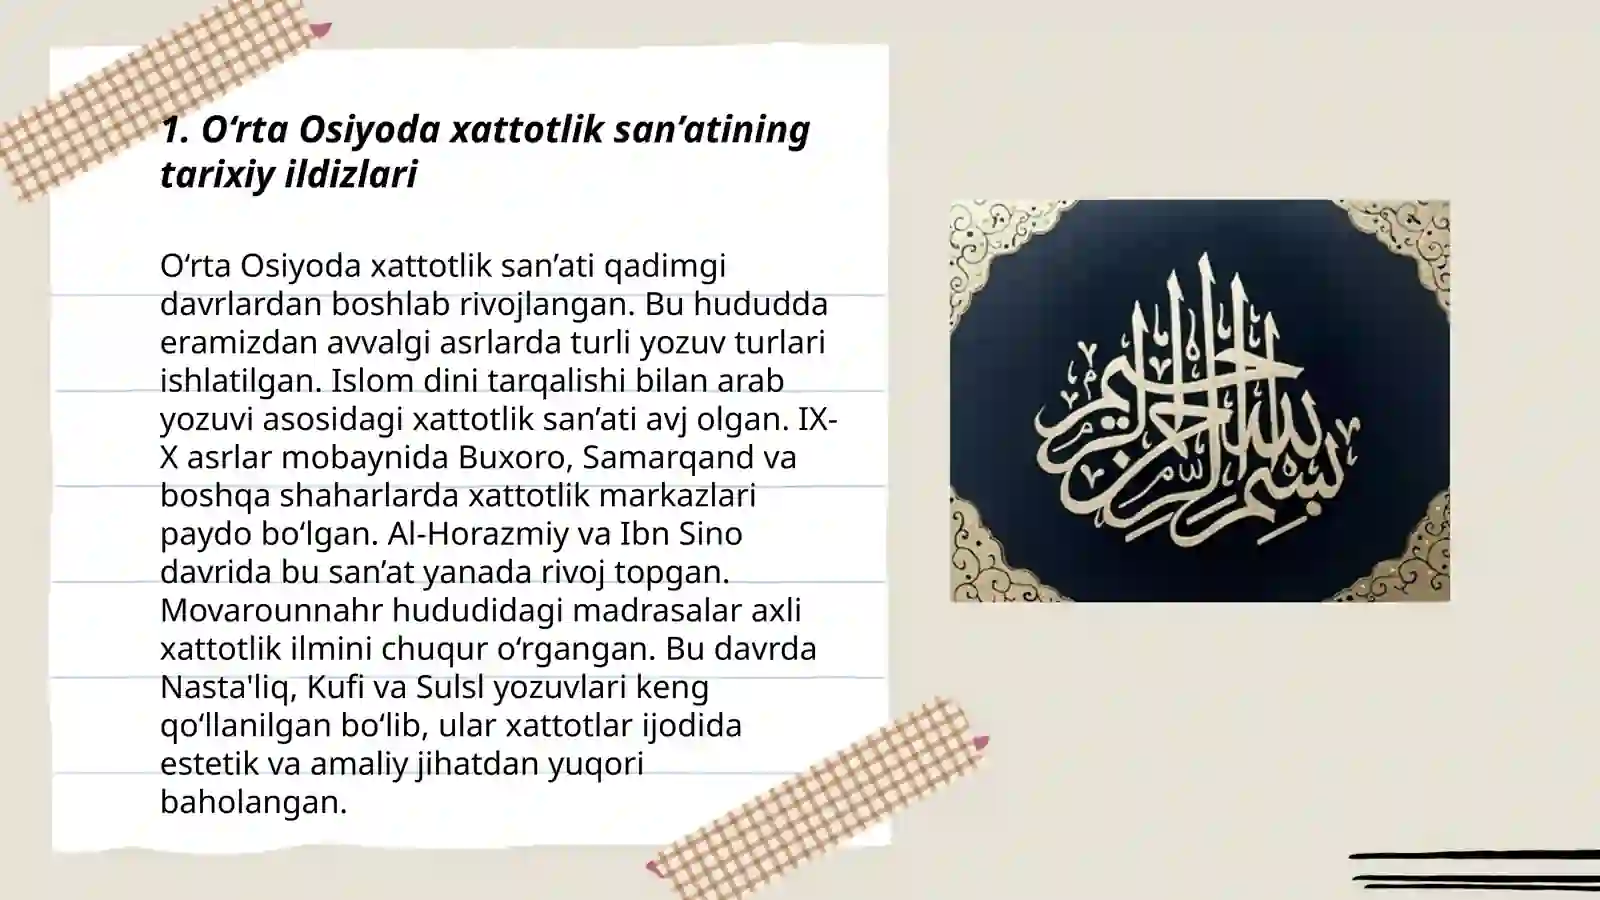 1. O‘rta Osiyoda xattotlik san’atining
tarixiy ildizlari
O‘rta Osiyoda xattotlik san’ati qadimgi
davrlardan boshlab rivojlangan. Bu hududda
eramizdan avvalgi asrlarda turli yozuv turlari
ishlatilgan. Islom dini tarqalishi bilan arab
yozuvi asosidagi xattotlik san’ati avj olgan. IX-
X asrlar mobaynida Buxoro, Samarqand va
boshqa shaharlarda xattotlik markazlari
paydo bo‘lgan. Al-Horazmiy va Ibn Sino
davrida bu san’at yanada rivoj topgan.
Movarounnahr hududidagi madrasalar axli
xattotlik ilmini chuqur o‘rgangan. Bu davrda
Nasta'liq, Kufi va Sulsl yozuvlari keng
qo‘llanilgan bo‘lib, ular xattotlar ijodida
estetik va amaliy jihatdan yuqori
baholangan.
بسم الله الرحمن الرحيم